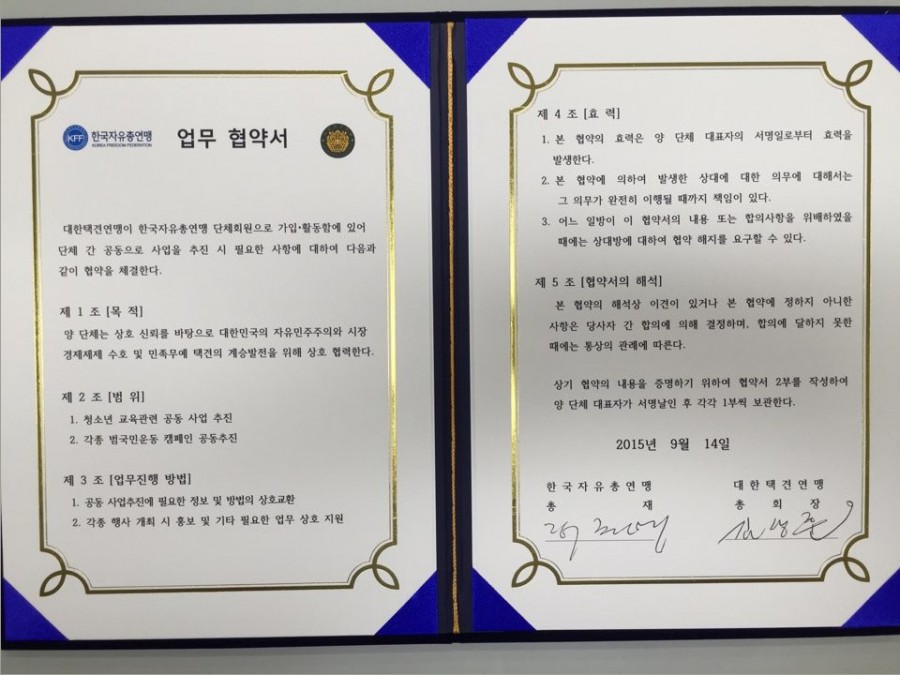 KFF 한국자유총연맹
KOREA FREEDOM FEDERATION
업무 협약서
대한택견연맹이 한국자유총연맹 단체회원으로 가입•활동함에 있어
단체 간 공동으로 사업을 추진 시 필요한 사항에 대하여 다음과
같이 협약을 체결한다.
제 1 조 [목 적]
양 단체는 상호 신뢰를 바탕으로 대한민국의 자유민주주의와 시장
경제체제 수호 및 민족무예 택견의 계승발전을 위해 상호 협력한다.
제 2 조 [범 위]
1. 청소년 교육관련 공동 사업 추진
2. 각종 범국민운동 캠페인 공동추진
제 3 조 [업무진행 방법]
1. 공동 사업추진에 필요한 정보 및 방법의 상호교환
2. 각종 행사 개최 시 홍보 및 기타 필요한 업무 상호 지원
제 4 조 [효 력]
1. 본 협약의 효력은 양 단체 대표자의 서명일로부터 효력을
발생한다.
2. 본 협약에 의하여 발생한 상대에 대한 의무에 대해서는
그 의무가 완전히 이행될 때까지 책임이 있다.
3. 어느 일방이 이 협약서의 내용 또는 합의사항을 위배하였을
때에는 상대방에 대하여 협약 해지를 요구할 수 있다.
제 5 조 [협약서의 해석]
본 협약의 해석상 이견이 있거나 본 협약에 정하지 아니한
사항은 당사자 간 합의에 의해 결정하며, 합의에 달하지 못한
때에는 통상의 관례에 따른다.
상기 협약의 내용을 증명하기 위하여 협약서 2부를 작성하여
양 단체 대표자가 서명날인 후 각각 1부씩 보관한다.
2015년 9월 14일
한국자유총연맹
총 재
대한택견연맹
총 회 장